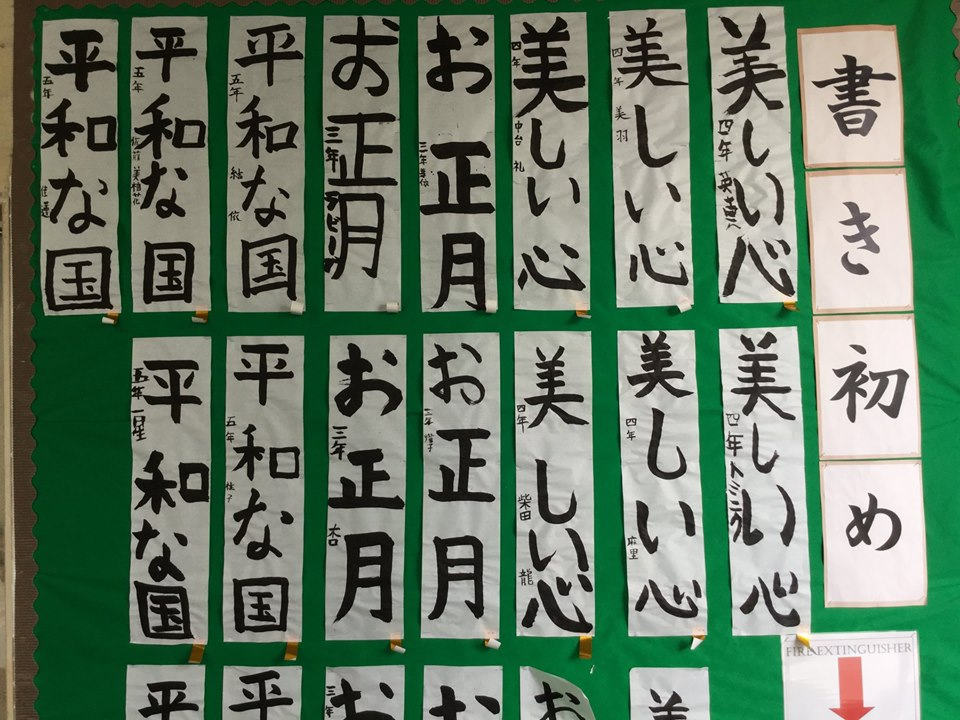 書き初め
美しい心
四年
美しい心
四年 美羽
美しい心
四年 中台 礼
お正月
三年
お正月
三年
平和な国
五年 結依
平和な国
五年
平和な国
五年
美しい心
四年
美しい心
四年 麻里
美しい心
四年 柴田 龍
お正月
三年
お正月
三年 杏
平和な国
五年
平和な国
五年 一星
美
お
お
お
三年
平
平
FIRE EXTINGUISHER